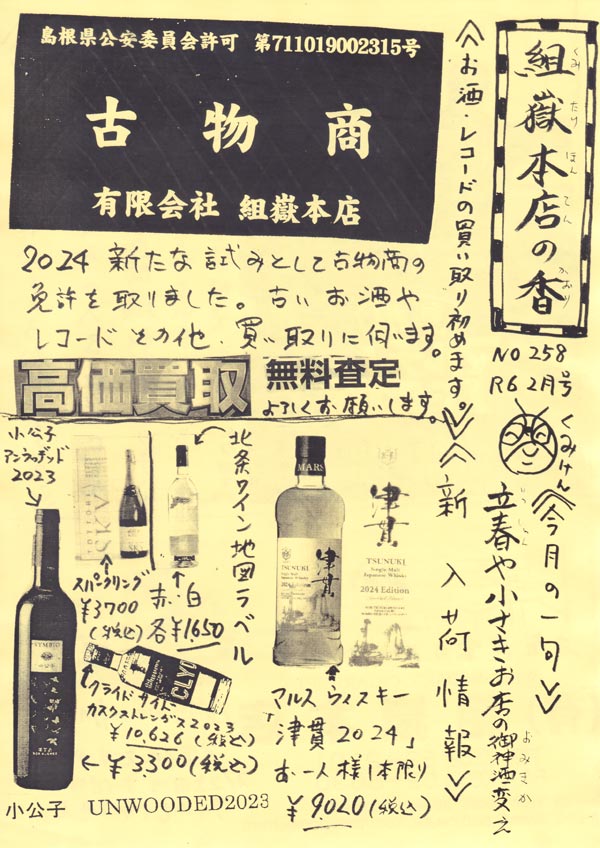 組嶽本店の香
くみ たけ ほん てん かおり
NO 258
R6 2月号
くみけん
≪今月の一句≫
立春や小さきお店の御神酒変え
りっしゅん
おみきか
≪お酒・レコードの買い取り初めます。≫
島根県公安委員会許可 第711019002315号
古物商
有限会社 組嶽本店
2024 新たな試みとして古物商の
免許を取りました。古いお酒や
レコードその他、買い取りに伺います。
高価買取
無料査定
よろしくお願いします。
≪新入荷情報≫
MARS
津貫
TSUNUKI
Single Malt
Japanese Whisky
2024 Edition
津貫
TSUNUKI
Single Malt
Japanese Whisky
2024 Edition
マルスウィスキー
「津貫2024」
お一人様1本限り
¥9020(税込)
北条ワイン地図ラベル
赤・白
各¥1650
スパークリング
¥3700
(税込)
CLYDE
クライドサイド
カスクストレングス2023
¥10,626(税込)
小公子
アンウッディッド
2023
SYMBIO
←¥3300(税込)
小公子 UNWOODED2023